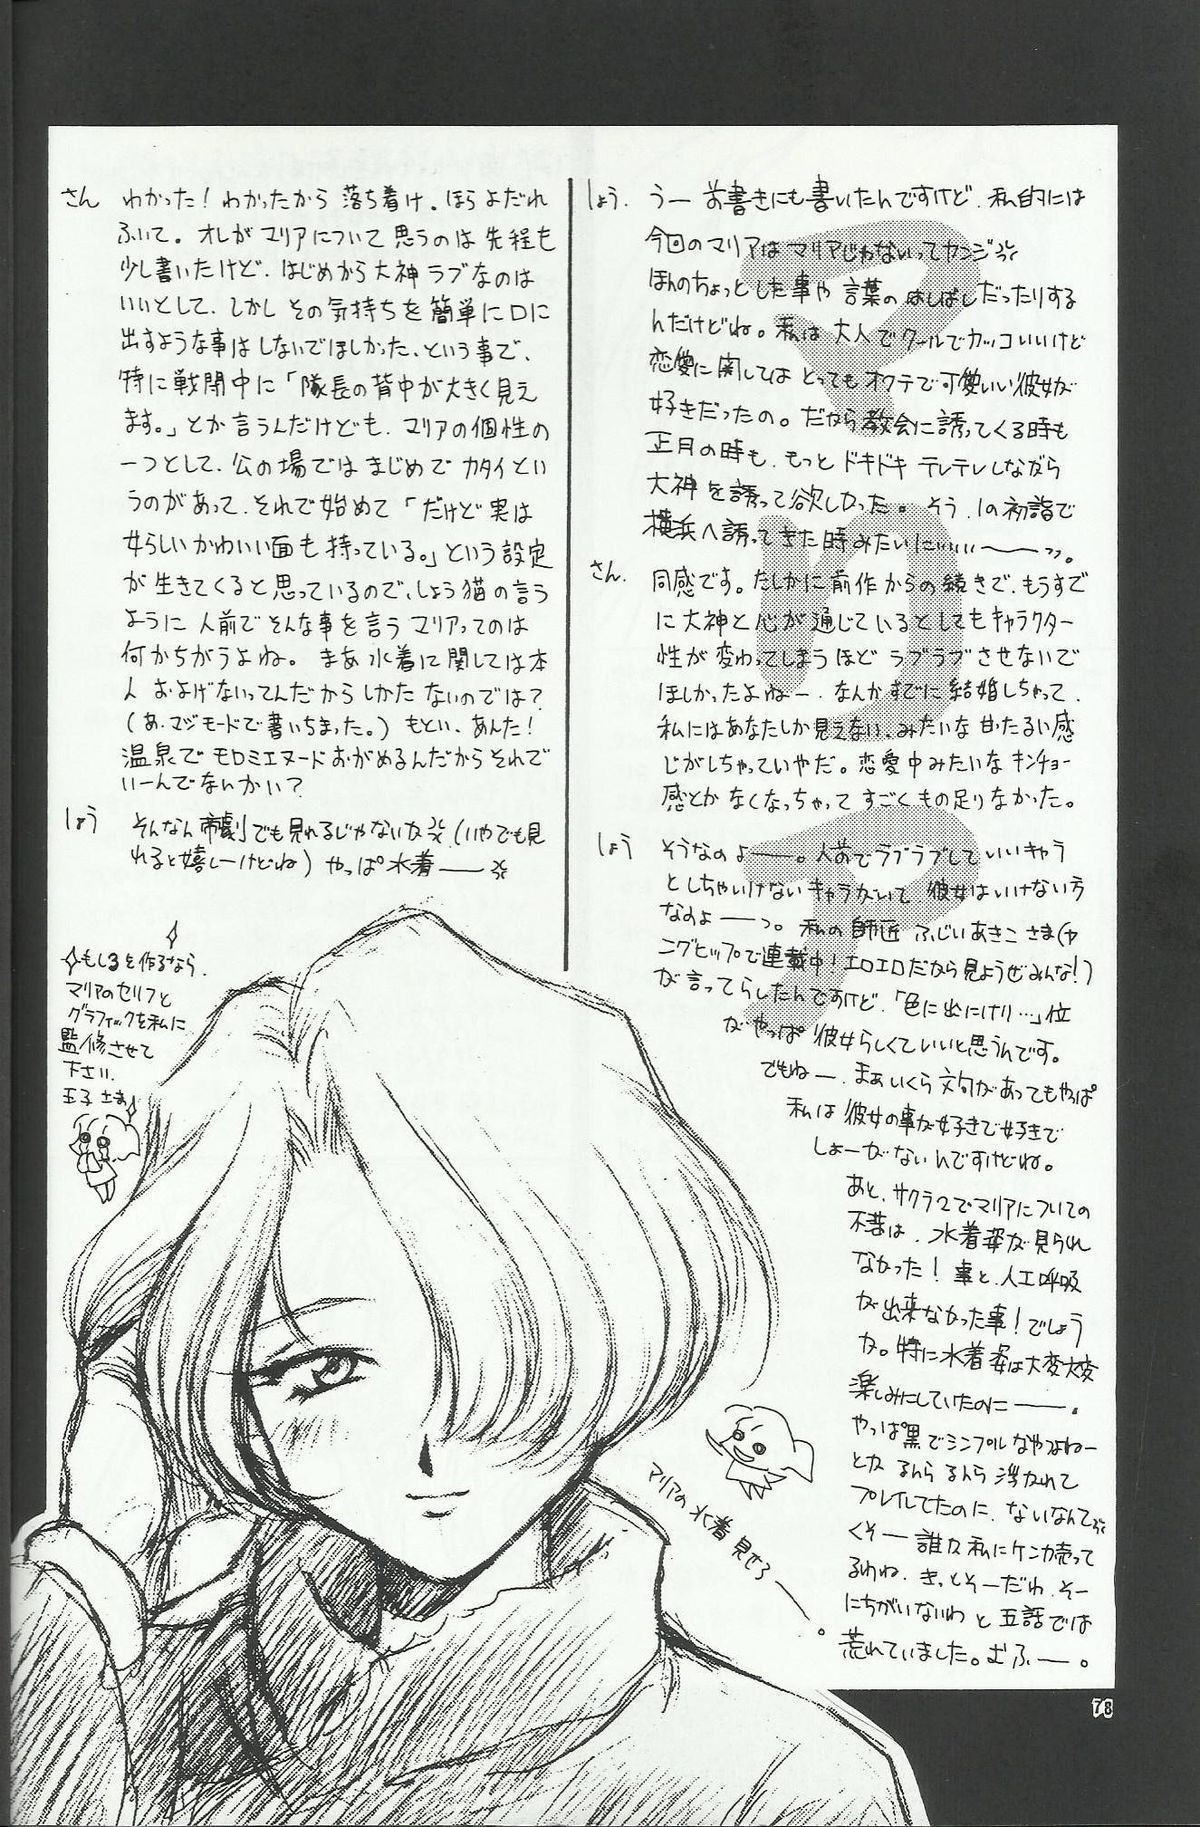 しょう. うー お書きにも書いたんですけど、私的には
今回のマリアはマリアじゃないってカンジ
ほんのちょっとした事や 言葉の はしばしだったりする
んだけどね。私は 大人で クールで カッコいいけど
恋愛に関しては とっても オクテで 可愛いい 彼女が
好きだったの。だから 教会に 誘ってくる時も
正月の時も、もっと ドキドキ テレテレしながら
大神を誘って欲しかった。そう、1の初詣で
横浜へ誘ってきた時みたいにぃぃぃーーっっ。
さん. 同感です。たしかに前作からの続きで、もうすで
に大神と心が通じているとしてもキャラクター
性が変わってしまうほど ラブラブさせないで
ほしかったよねー、なんかすでに結婚しちゃって、
私にはあなたしか見えない、みたいな甘ったるい感
じがしちゃっていやだ。恋愛中みたいなキンチョー
感とかなくなっちゃって すごくもの足りなかった。
しょう そうなのよーー。人前でラブラブしていいキャラ
としちゃいけないキャラがいて 彼女はいけない方
なのよーーっ。私の師匠 ふじいあきこさま(ヤ
ングヒップで連載中!エロエロだから見ようぜみんな!)
が言ってらしたんですけど、「色に出にけり…」位
がやっぱ 彼女らしくていいと思うんです。
でもねー、まぁいくら文句があってもやっぱ
私は彼女の事が好きで好きで
しょーがないんですけどね。
あと、サクラ2でマリアについての
不満は、水着姿が見られ
なかった!事と、人工呼吸
が出来なかった事!でしょう
か。特に水着姿は大変大変
楽しみにしていたのにーー。
やっぱ黒でシンプルなやつよねー
とか るんら るんら 浮かれて
プレイしてたのに、ないなんて
くそー 誰か私にケンカ売って
るわね、きっとそーだわ、そー
にちがいないわ と 五話では
荒れていました。むふー。
マリアの水着見せろーー。
さん わかった!わかったから 落ち着け。ほらよだれ
ふいて。オレがマリアについて思うのは先程も
少し書いたけど、はじめから大神ラブなのは
いいとして、しかし その気持ちを簡単に口に
出すような事はしないでほしかった、という事で、
特に戦闘中に「隊長の背中が大きく見え
ます。」とか言うんだけども、マリアの個性の
一つとして、公の場では まじめで カタイ とい
うのがあって、それで始めて「だけど実は
女らしいかわいい面も持っている。」という設定
が生きてくると思っているので、しょう猫の言う
ように 人前で そんな事を言う マリアってのは
何かちがうよね。まあ水着に関しては本
人 およげないってんだからしかたないのでは?
(あ、マジモードで書いちまった。) もとい、あんた!
温泉で モロミエヌードおがめるんだからそれで
いーんでないかい?
しょう そんなん帝劇でも見れるじゃないか(いやでも見
れると嬉しーけどね) やっぱ水着ーー
もし3を作るなら、
マリアのセリフと
グラフィックを私に
監修させて
下さい、
王子さま
78